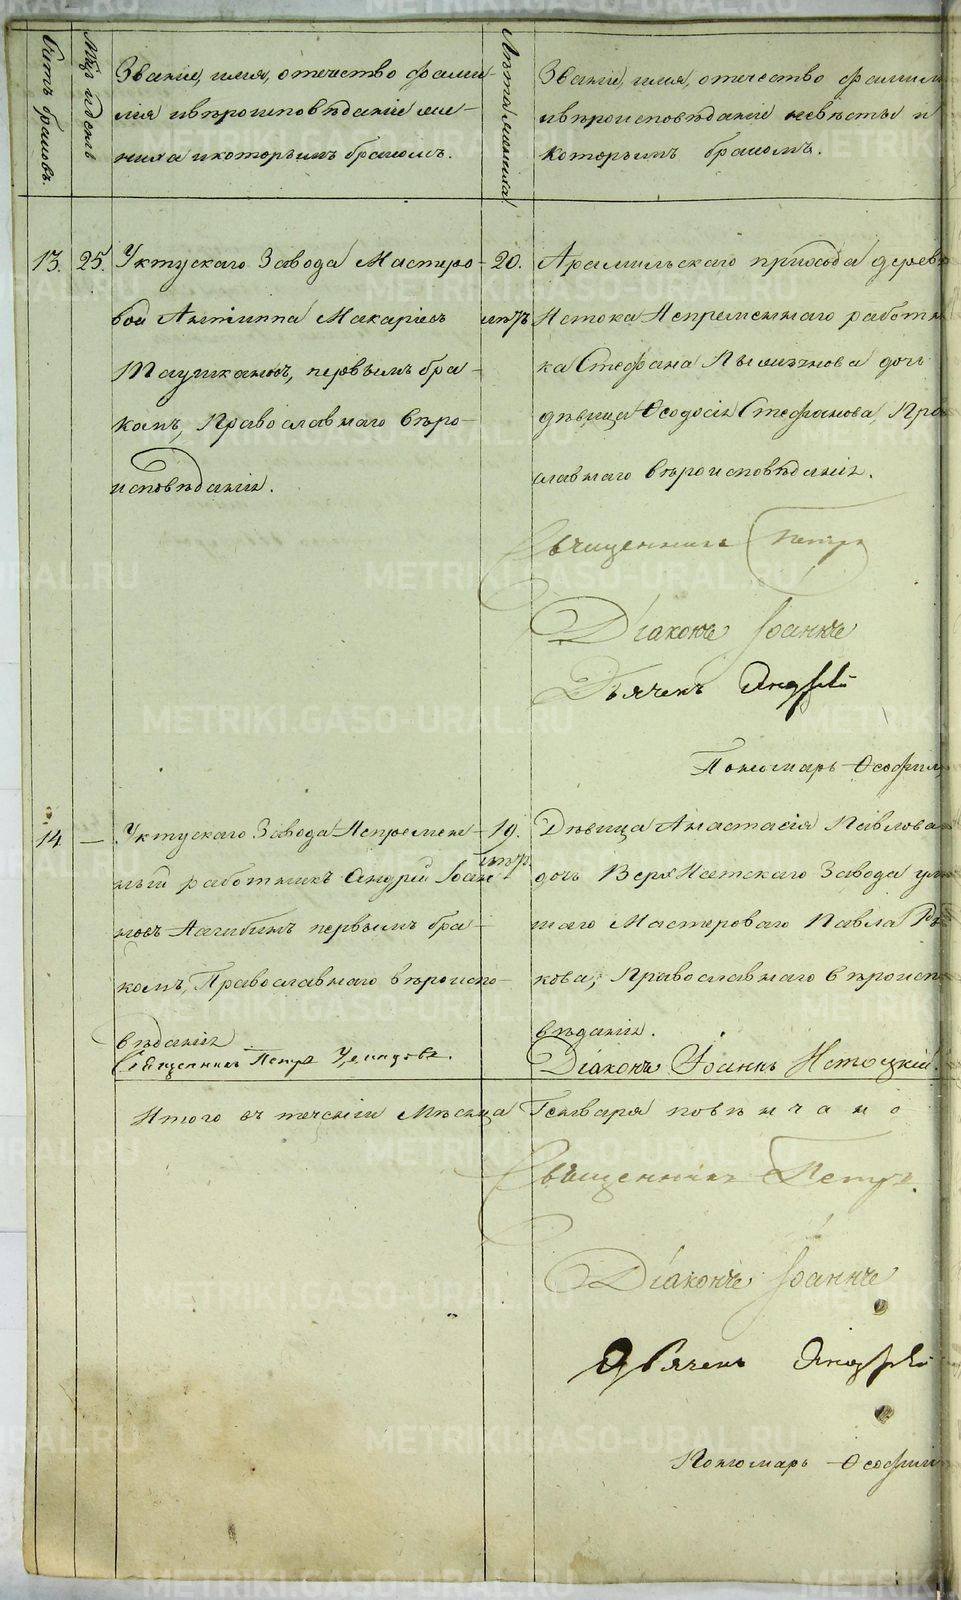 Счетъ браковъ.
Мѣс. и день
Званіе, имя, отечество фами-
лія и вѣроисповѣданіе же-
ниха и которымъ бракомъ.
Лѣта жениха
Званіе, имя, отечество фамил
и вѣроисповѣданіе невѣсты и
которымъ бракомъ.
13.
25.
Уктускаго Завода Мастеро-
вой Антиппа Макаріевъ
первымъ бра-
комъ, Православнаго вѣро-
исповѣданія.
20.
Арамильскаго прихода дерев
Истока Непременнаго работн
ка Стефана дочь
дѣвица Ѳеодосія Стефанова, Пра
славнаго вѣроисповѣданія.
Священникъ Петръ
Діаконъ Іоаннъ
Дьячекъ Андрей
Пономарь Ѳеофил
14
—
Уктускаго Завода Непремен-
ный работникъ Андрей Іоан
новъ первымъ бра-
комъ, Православнаго вѣроиспо-
вѣданія
19.
Дѣвица Анастасія Павлова
дочь Верх Исетскаго Завода ум
шаго Мастероваго Павла
кова, Православнаго вѣроисп
вѣданія.
Священникъ Петръ
Діаконъ Іоаннъ Истоцкій.
Итого въ теченіи Мѣсяца Генваря повѣнчано
Священникъ Петръ.
Діаконъ Іоаннъ
Дьячекъ Андрей
Пономарь Ѳеофил
METRIKI.GASO-URAL.RU